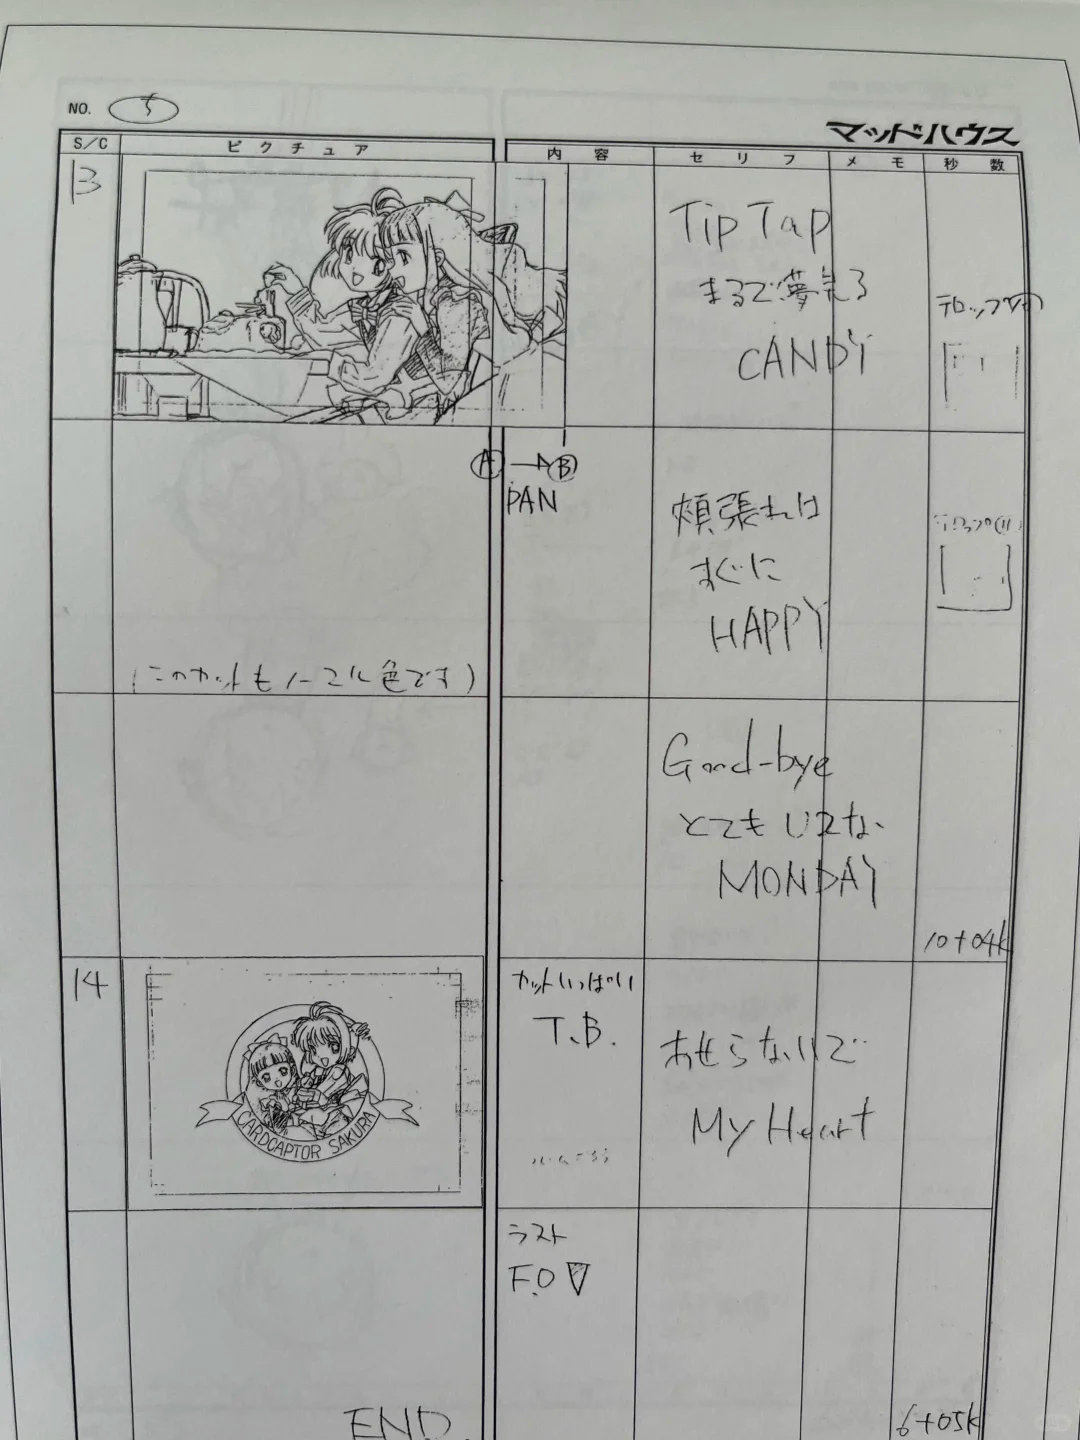 NO. 5
マッドハウス
S/C ピクチュア 内容 セリフ メモ 秒数
13
Tip Tap
まるで夢見る
CANDY
テロップ
A → B
PAN
頬張れば
すぐに
HAPPY
(このカットもノーマル色です)
Good-bye
とてもいえない
MONDAY
10+04k
14
カットいっぱい
T.B.
あせらないで
My Heart
CARDCAPTOR SAKURA
ラスト
F.O
END.
6+05k